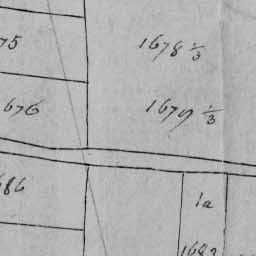 75
1678 1/3
676
1679 1/3
686
1a
1682